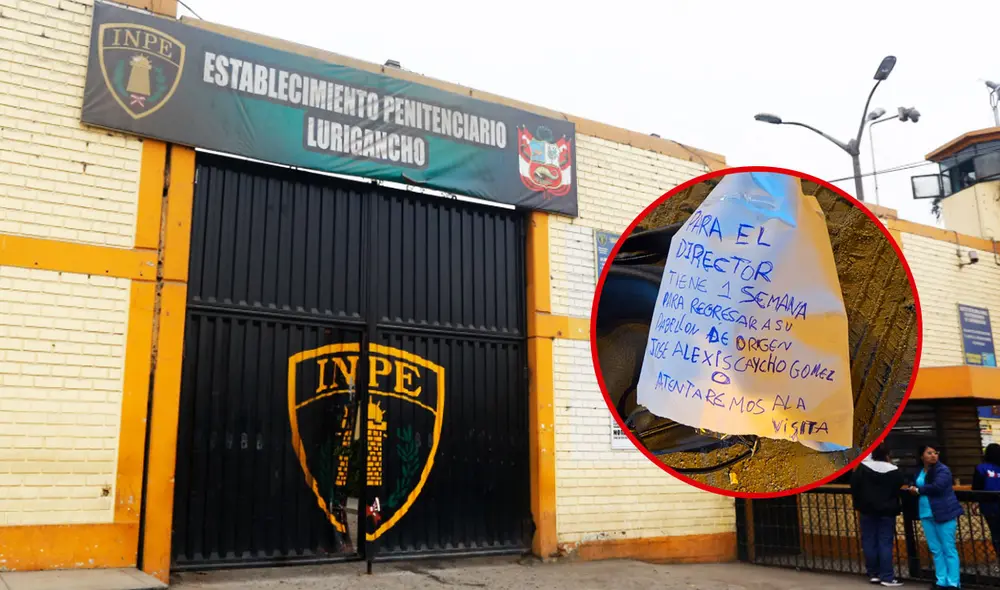 INPE
ESTABLECIMIENTO PENITENCIARIO
LURIGANCHO
INPE
PARA EL
DIRECTOR
TIENE 1 SEMANA
PARA REGRESAR A SU
PABELLON DE ORIGEN
JOSE ALEXIS CAYCHO GOMEZ
O
ATENTAREMOS A LA
VISITA